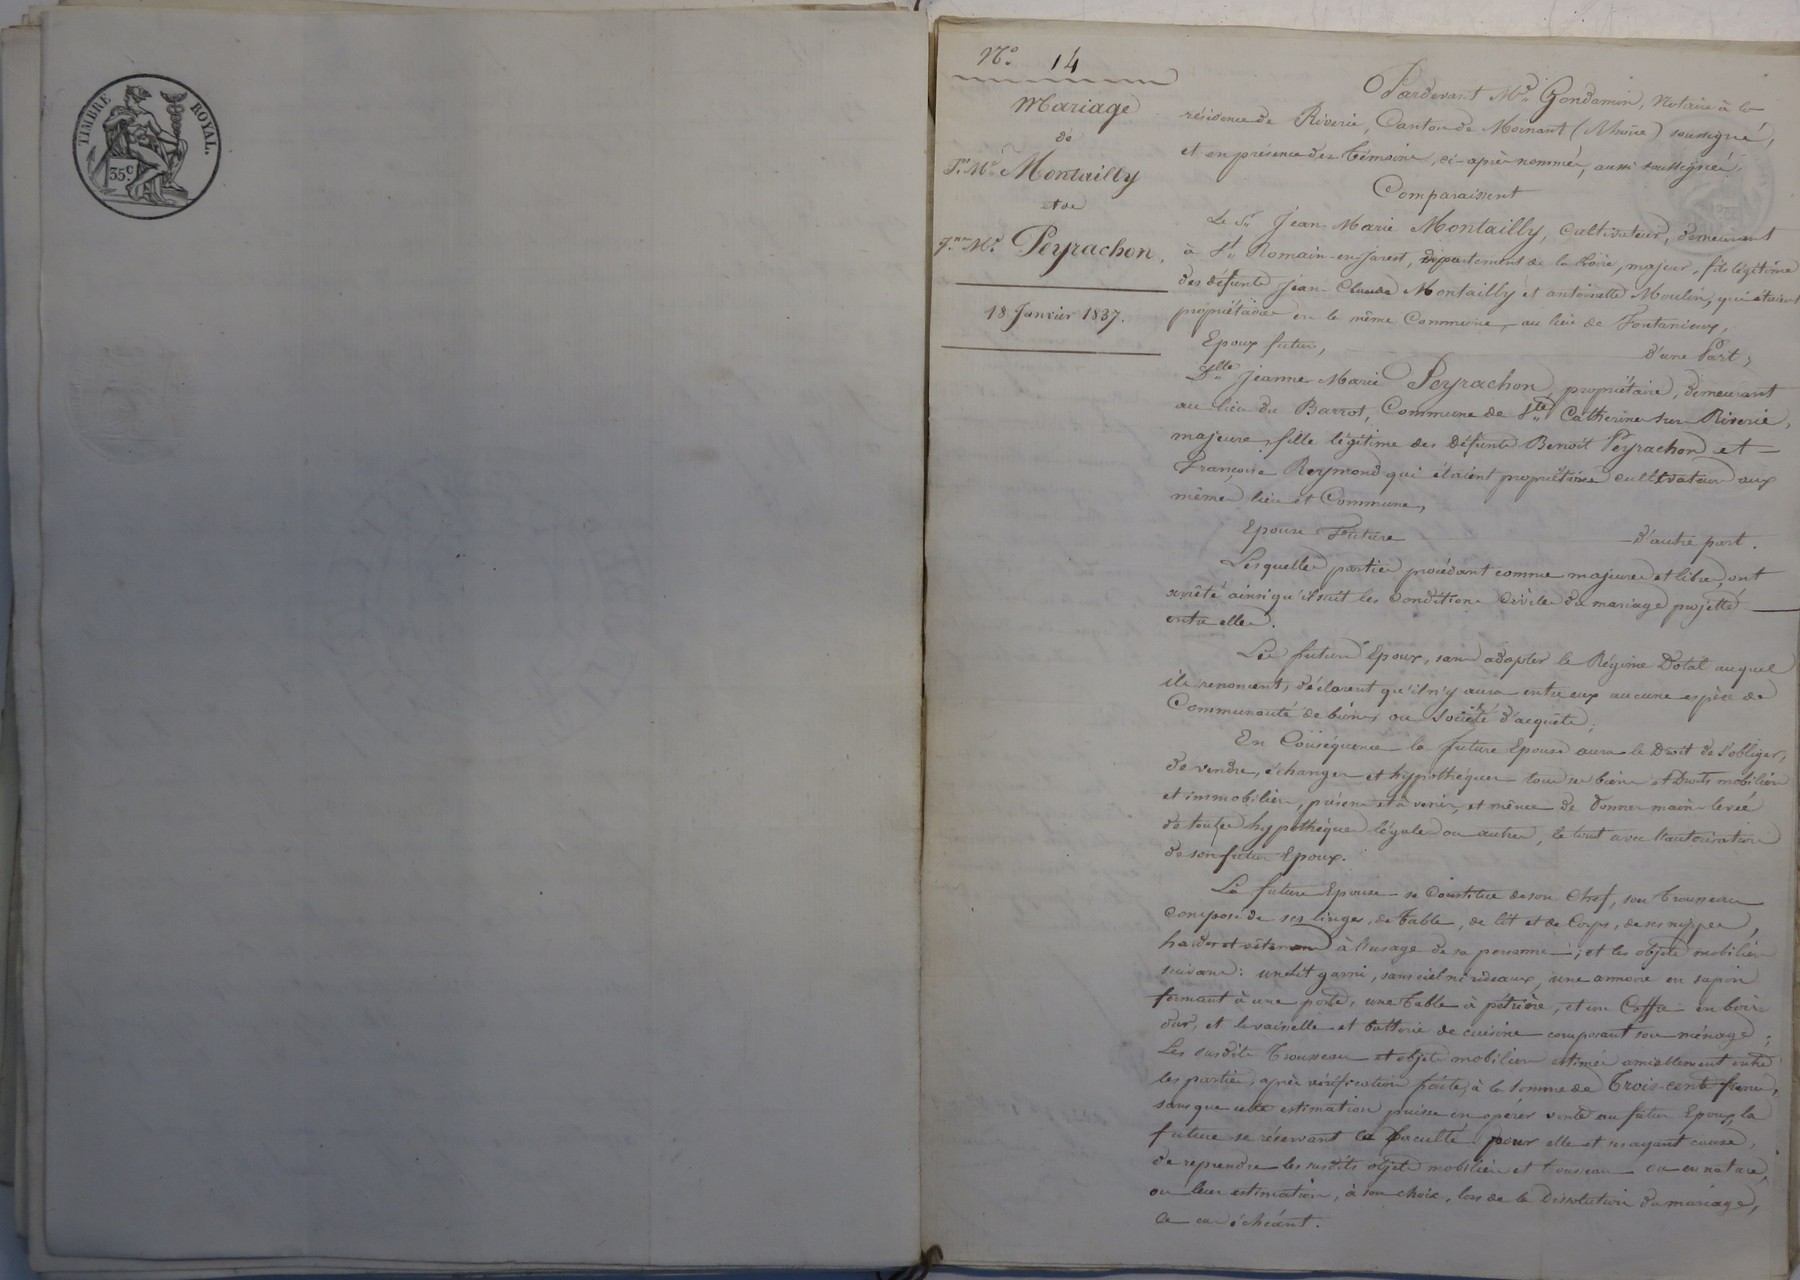 TIMBRE ROYAL.
35 c.
N.o 14
Mariage
de
J.n M.e Montailly
et de
J.ne M.e Peyrachon.
18 Janvier 1837.
Pardevant M.e Gondamin, Notaire à la
résidence de Riverie, Canton de Mornant (Rhône) soussigné,
et en présence des témoins, ci-après nommés, aussi soussignés.
Comparaissent
Le S.r Jean Marie Montailly, Cultivateur, demeurant
à S.t Romain-en-Jarest, département de la Loire, majeur, fils légitime
des défunts Jean-Claude Montailly et antoinette Moulin, qui étaient
propriétaires en la même Commune, au lieu de Fontanieux,
Epoux futur, d'une Part;
D.lle Jeanne Marie Peyrachon propriétaire, demeurant
au lieu du Barrot, Commune de S.te Catherine sur Riverie,
majeure, fille légitime des défunts Benoit Peyrachon et
Françoise Reymond qui étaient propriétaires cultivateurs aux
mêmes lieu et Commune,
Epouse Future d'autre part.
Lesquelles parties procédant comme majeures et libres, ont
arrêté ainsi qu'il suit les conditions civiles du mariage projetté
entre elles.
Les futurs Epoux, sans adopter le Régime Dotal auquel
ils renoncent, déclarent qu'il n'y aura entre eux aucune espèce de
Communauté de biens ou Société d'acquêts;
En Conséquence la future Epouse aura le Droit de s'obliger,
de vendre, échanger et hypothéquer tous ses biens et Droits mobiliers
et immobiliers, présens et à venir, et même de donner main-levée
de toutes hypothèques légales ou autres, le tout avec l'autorisation
de son futur Epoux.
La future Epouse se Constitue de son Chef, son trousseau
composé de ses linges de table, de lit et de Corps, de ses nippes,
hardes et vêtemens à l'usage de sa personne; et les objets mobiliers
suivans: un lit garni, sans ciel ni rideaux, une armoire en sapin
fermant à une porte, une table à pétrière, et un Coffre en bois
dur, et la vaisselle et batterie de cuisine composant son ménage;
Les susdits trousseau et objets mobiliers estimés amiablement entre
les parties, après vérification faite, à la somme de Trois-cents francs,
sans que cette estimation puisse en opérer vente au futur Epoux, la
future se réservant la faculté pour elle et ses ayant cause,
de reprendre les susdits objets mobiliers et trousseau ou en nature
ou leur estimation, à son choix, lors de la Dissolution du mariage,
ce cas échéant.